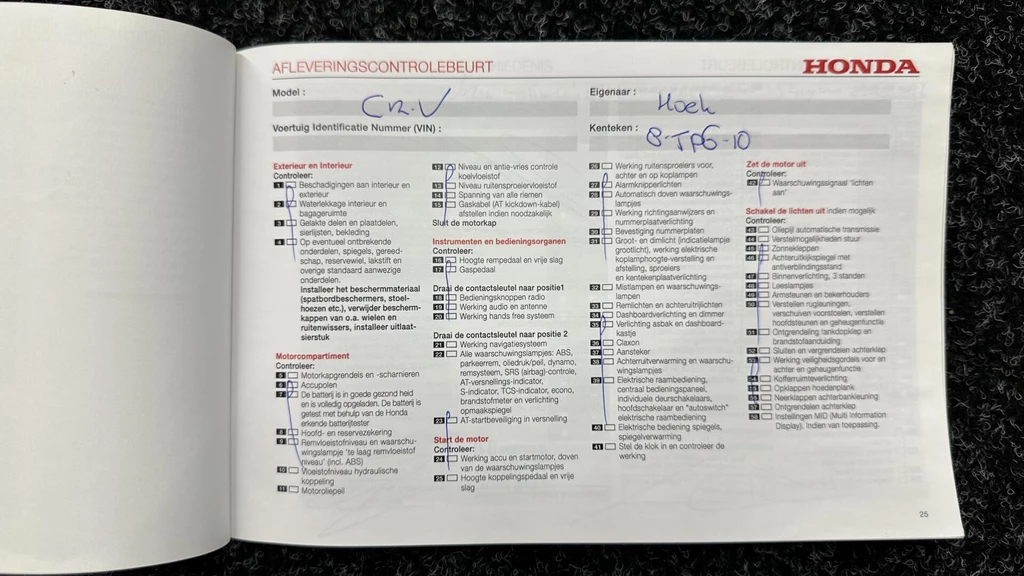 AFLEVERINGSCONTROLEBEURT
HONDA
Model :
CR-V
Eigenaar :
Hoek
Voertuig Identificatie Nummer (VIN) :
Kenteken :
8-TPG-10
Exterieur en Interieur
Controleer:
1 Beschadigingen aan interieur en
exterieur
2 Waterlekkage interieur en
bagageruimte
3 Gelakte delen en plaatdelen,
sierlijsten, bekleding
4 Op eventueel ontbrekende
onderdelen, spiegels, gereed-
schap, reservewiel, lakstift en
overige standaard aanwezige
onderdelen.
Installeer het beschermmateriaal
(spatbordbeschermers, stoel-
hoezen etc.), verwijder bescherm-
kappen van o.a. wielen en
ruitenwissers, installeer uitlaat-
sierstuk
Motorcompartiment
Controleer:
5 Motorkapgrendels en -scharnieren
6 Accupolen
7 De batterij is in goede gezond heid
en is volledig opgeladen. De batterij is
getest met behulp van de Honda
erkende batterijtester
8 Hoofd- en reservezekering
9 Remvloeistofniveau en waarschu-
wingslampje 'te laag remvloeistof
niveau' (incl. ABS)
10 Vloeistofniveau hydraulische
koppeling
11 Motoroliepeil
12 Niveau en antie-vries controle
koelvloeistof
13 Niveau ruitensproeiervloeistof
14 Spanning van alle riemen
15 Gaskabel (AT kickdown-kabel)
afstellen indien noodzakelijk
Sluit de motorkap
Instrumenten en bedieningsorganen
Controleer:
16 Hoogte rempedaal en vrije slag
17 Gaspedaal
Draai de contactsleutel naar positie1
18 Bedieningsknoppen radio
19 Werking audio en antenne
20 Werking hands free systeem
Draai de contactsleutel naar positie 2
21 Werking navigatiesysteem
22 Alle waarschuwingslampjes: ABS,
parkeerrem, oliedruk/peil, dynamo,
remsysteem, SRS (airbag)-controle,
AT-versnellings-indicator,
S-indicator, TCS-indicator, econo,
brandstofmeter en verlichting
opmaakspiegel
23 AT-startbeveiliging in versnelling
Start de motor
Controleer:
24 Werking accu en startmotor, doven
van de waarschuwingslampjes
25 Hoogte koppelingspedaal en vrije
slag
26 Werking ruitensproeiers voor,
achter en op koplampen
27 Alarmknipperlichten
28 Automatisch doven waarschuwings-
lampjes
29 Werking richtingaanwijzers en
nummerplaatverlichting
30 Bevestiging nummerplaten
31 Groot- en dimlicht (indicatielampje
grootlicht), werking elektrische
koplamphoogte-verstelling en
afstelling, sproeiers
en kentekenplaatverlichting
32 Mistlampen en waarschuwings-
lampen
33 Remlichten en achteruitrijlichten
34 Dashboardverlichting en dimmer
35 Verlichting asbak en dashboard-
kastje
36 Claxon
37 Aansteker
38 Achterruitverwarming en waarschu-
wingslampjes
39 Elektrische raambediening,
centraal bedieningspaneel,
individuele deurschakelaars,
hoofdschakelaar en "autoswitch"
elektrische raambediening
40 Elektrische bediening spiegels,
spiegelverwarming
41 Stel de klok in en controleer de
werking
Zet de motor uit
Controleer:
42 Waarschuwingssignaal 'lichten
aan'
Schakel de lichten uit indien mogelijk
Controleer:
43 Oliepijl automatische transmissie
44 Verstelmogelijkheden stuur
45 Zonnekleppen
46 Achteruitkijkspiegel met
antiverblindingsstand
47 Binnenverlichting, 3 standen
48 Leeslampjes
49 Armsteunen en bekerhouders
50 Verstellen rugleuningen,
verschuiven voorstoelen, verstellen
hoofdsteunen en geheugenfunctie
51 Ontgrendeling tankdopklep en
brandstofaanduiding
52 Sluiten en vergrendelen achterklep
53 Werking veiligheidsgordels voor en
achter en geheugenfunctie
54 Kofferruimteverlichting
55 Opklappen hoedenplank
56 Neerklappen achterbankleuning
57 Ontgrendelen achterklep
58 Instellingen MID (Multi Information
Display). Indien van toepassing.
25